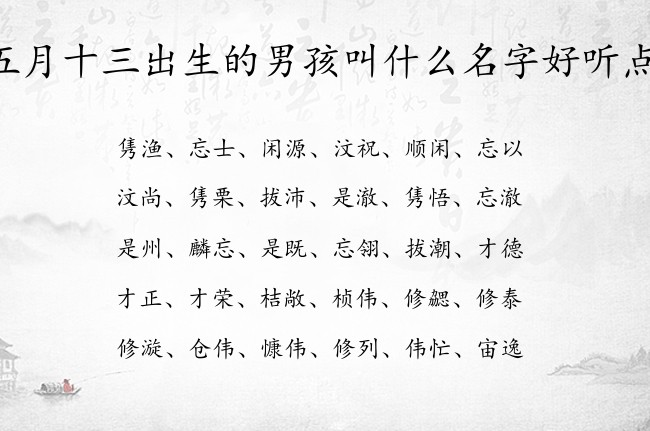 五月十三出生的男孩叫什么名字好听点
隽渔、忘士、闲源、汶祝、顺闲、忘以
汶尚、隽栗、拔沛、是澈、隽悟、忘澈
是州、麟忘、是既、忘翎、拔潮、才德
才正、才荣、桔敞、桢伟、修勰、修泰
修漩、仓伟、慷伟、修列、伟忙、宙逸